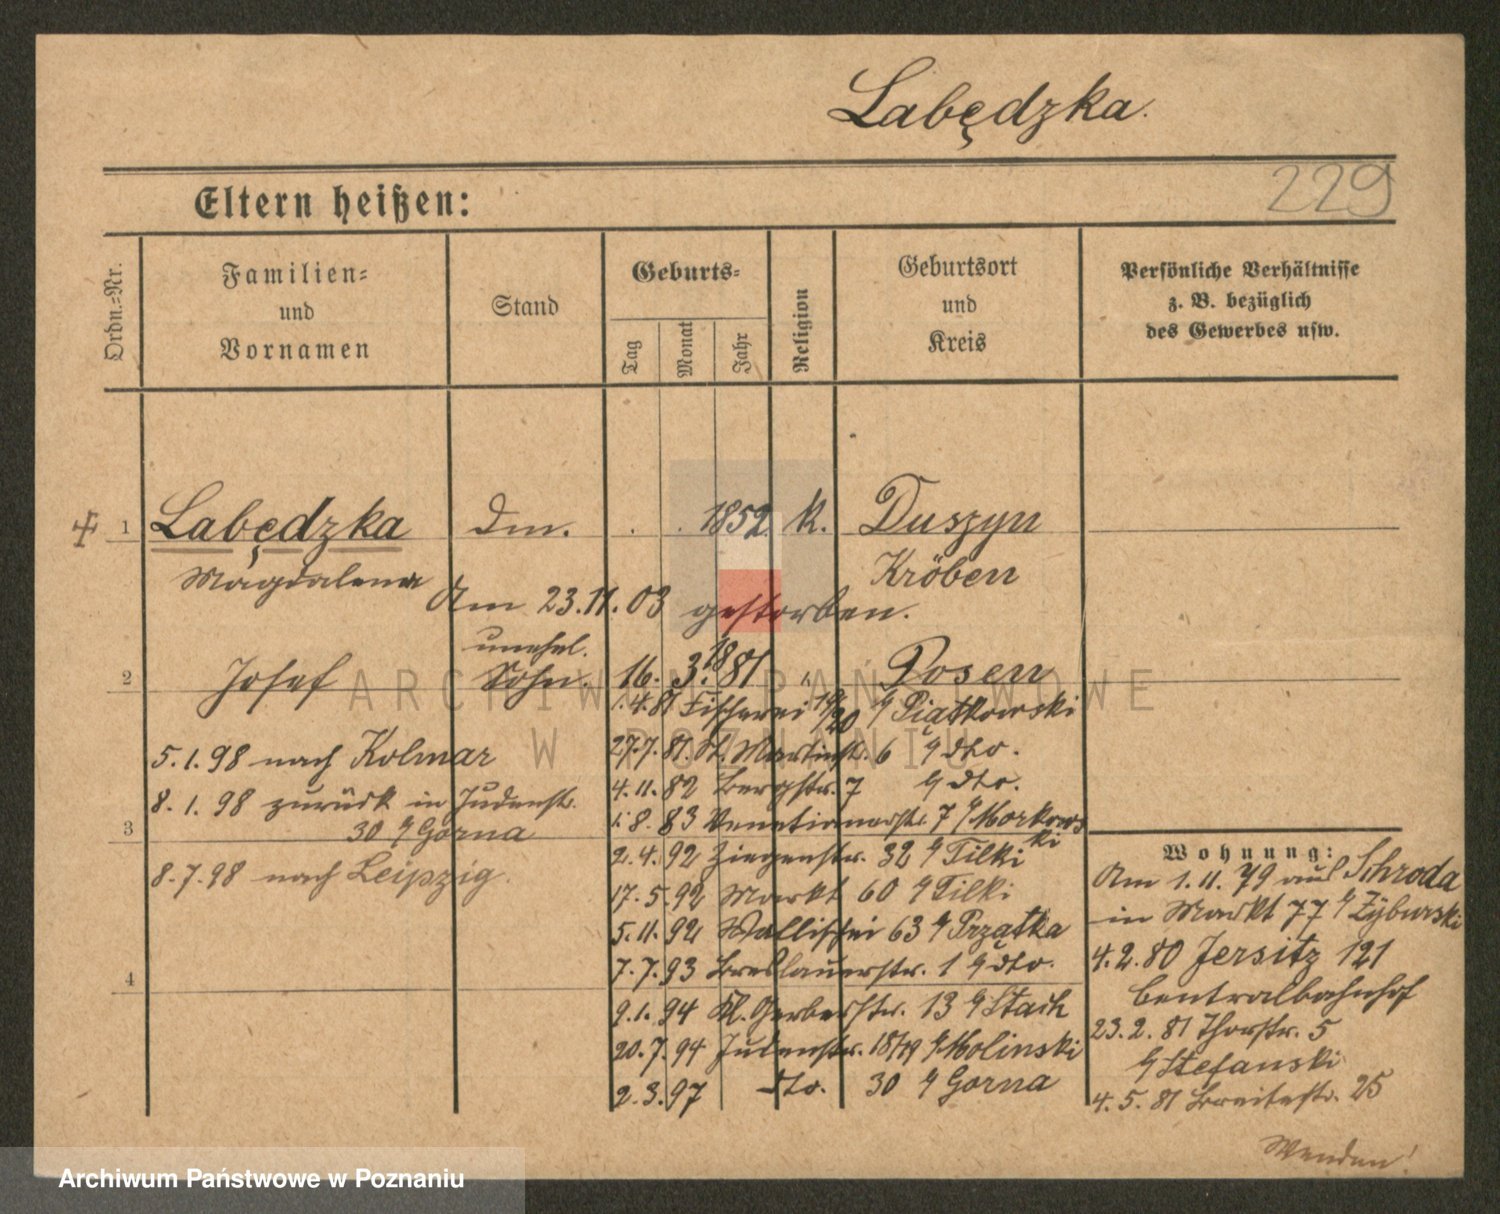 Labędzka.
229
Eltern heißen:
Ordn.=Nr.
Familien=
und
Vornamen
Stand
Geburts=
Tag
Monat
Jahr
Religion
Geburtsort
und
Kreis
Persönliche Verhältnisse
z. B. bezüglich
des Gewerbes usw.
1 Labędzka Dm. . . 1852. K. Duszyn
Magdalena Kröben
Am 23.11.03 gestorben.
unehel.
2 Josef Sohn. 16. 3. 1881 " Posen
Fischerei 19/20 b/ Piątkowski
5.1.98 nach Kolmar
27.7.81. St. Martinstr. 6 b/ dto.
8.1.98 zurück in Judenstr.
30 b/ Gorna
4.11.82 Bergstr. 7 b/ dto.
3
1.8.83 Venetianerstr. 7 b/ Morkowski
8.7.98 nach Leipzig.
2.4.92 Ziegenstr. 32 b/ Tilki
17.5.92 Markt 60 b/ Tilki
5.11.92 Wallischei 63 b/ Przątka
4
7.7.93 Breslauerstr. 1 b/ dto.
9.1.94 Kl. Gerberstr. 13 b/ Stach
20.7.94 Judenstr. 18/19 b/ Molinski
2.3.97 dto. 30 b/ Gorna
Wohnung:
Am 1.11.79 aus Schroda
in Markt 77 b/ Zyburski
4.2.80 Jersitz 121
Centralbahnhof
23.2.81 Thorstr. 5
b/ Stefanski
4.5.81 Breitestr. 25
Wenden!
ARCHIWUM PAŃSTWOWE
W POZNANIU
Archiwum Państwowe w Poznaniu